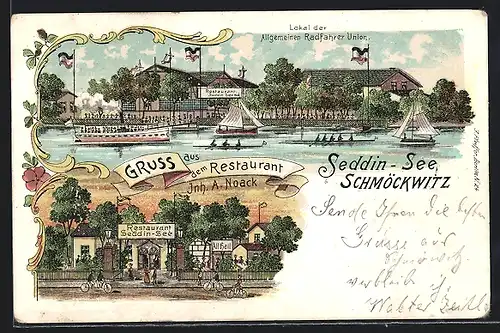 Lokal der
Allgemeinen Radfahrer Union.
Restaurant
GRUSS aus
dem Restaurant
Jnh. A. Noack
Seddin-See,
SCHMÖCKWITZ
Restaurant
Seddin-See
All Heil
Sende Ihnen die besten
Grüsse aus
Schmöckwitz
verbleibe ich
Walter